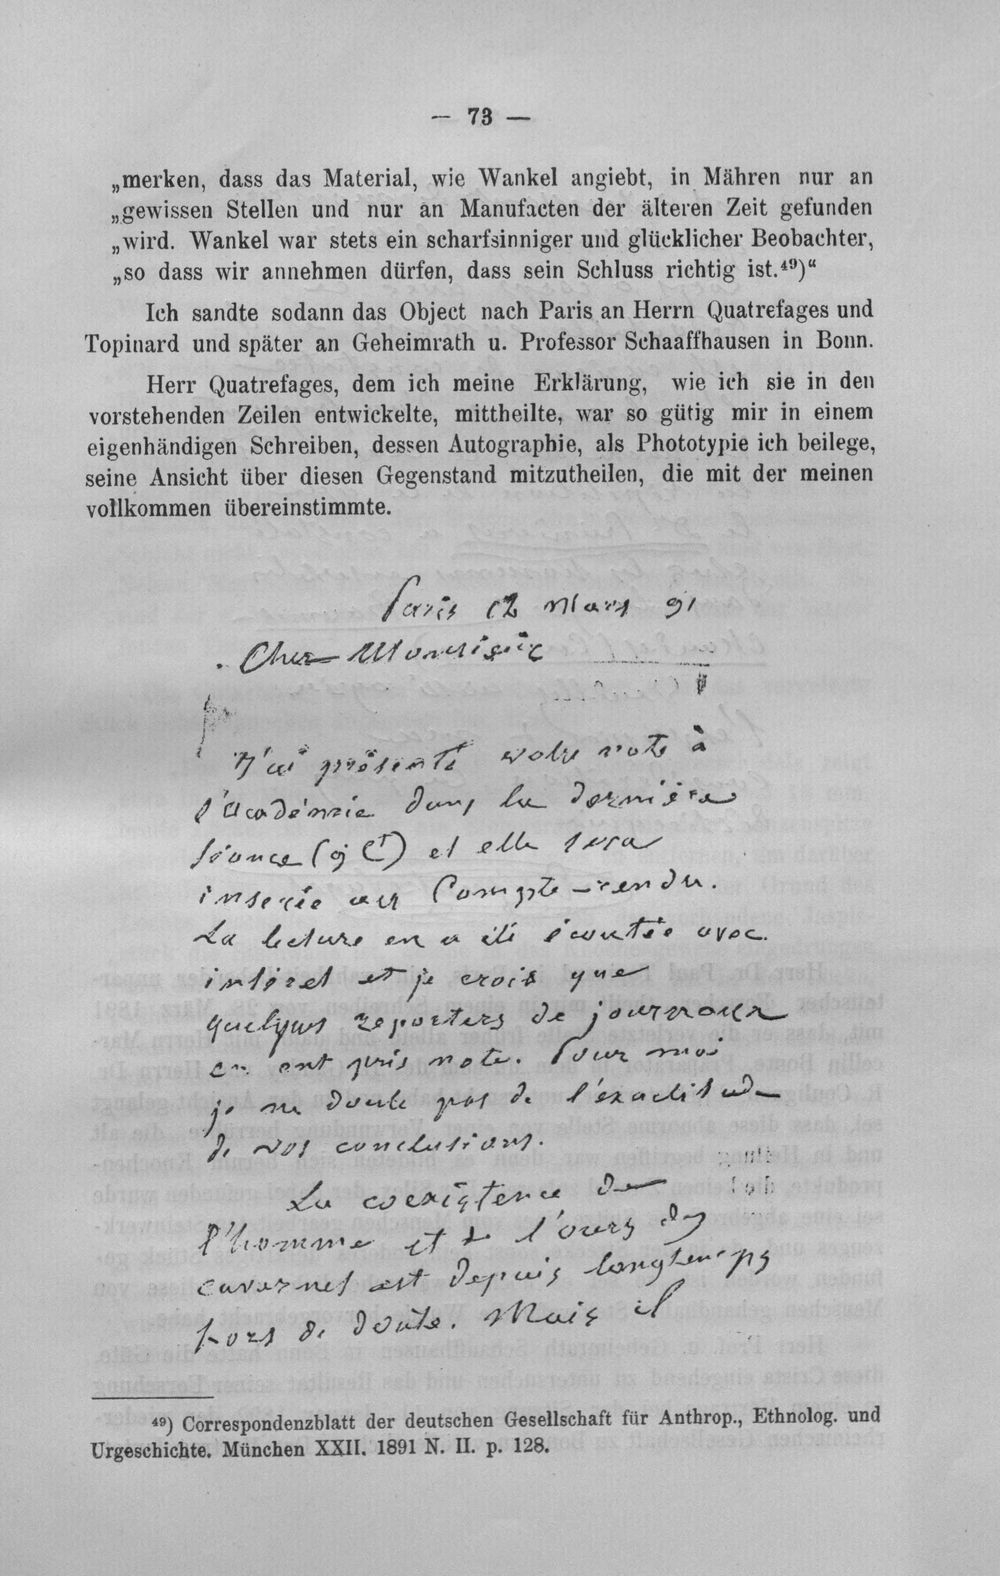 — 73 —
„merken, dass das Material, wie Wankel angiebt, in Mähren nur an
„gewissen Stellen und nur an Manufacten der älteren Zeit gefunden
„wird. Wankel war stets ein scharfsinniger und glücklicher Beobachter,
„so dass wir annehmen dürfen, dass sein Schluss richtig ist.⁴⁹)“
Ich sandte sodann das Object nach Paris an Herrn Quatrefages und
Topinard und später an Geheimrath u. Professor Schaaffhausen in Bonn.
Herr Quatrefages, dem ich meine Erklärung, wie ich sie in den
vorstehenden Zeilen entwickelte, mittheilte, war so gütig mir in einem
eigenhändigen Schreiben, dessen Autographie, als Phototypie ich beilege,
seine Ansicht über diesen Gegenstand mitzutheilen, die mit der meinen
vollkommen übereinstimmte.
Paris 12 Mars 91
Cher Monsieur
J'ai présenté votre note à
l'Académie dans la dernière
séance (9 Ct) et elle sera
insérée au Compte-rendu.
La lecture en a été écoutée avec
intéret et je crois que
quelques reporters de journaux
en ont pris note. Pour moi
je ne doute pas de l'exactitude
de vos conclusions.
La coexistence de
l'homme et de l'ours des
cavernes est depuis longtemps
hors de doute. Mais il
⁴⁹) Correspondenzblatt der deutschen Gesellschaft für Anthrop., Ethnolog. und
Urgeschichte. München XXII. 1891 N. II. p. 128.